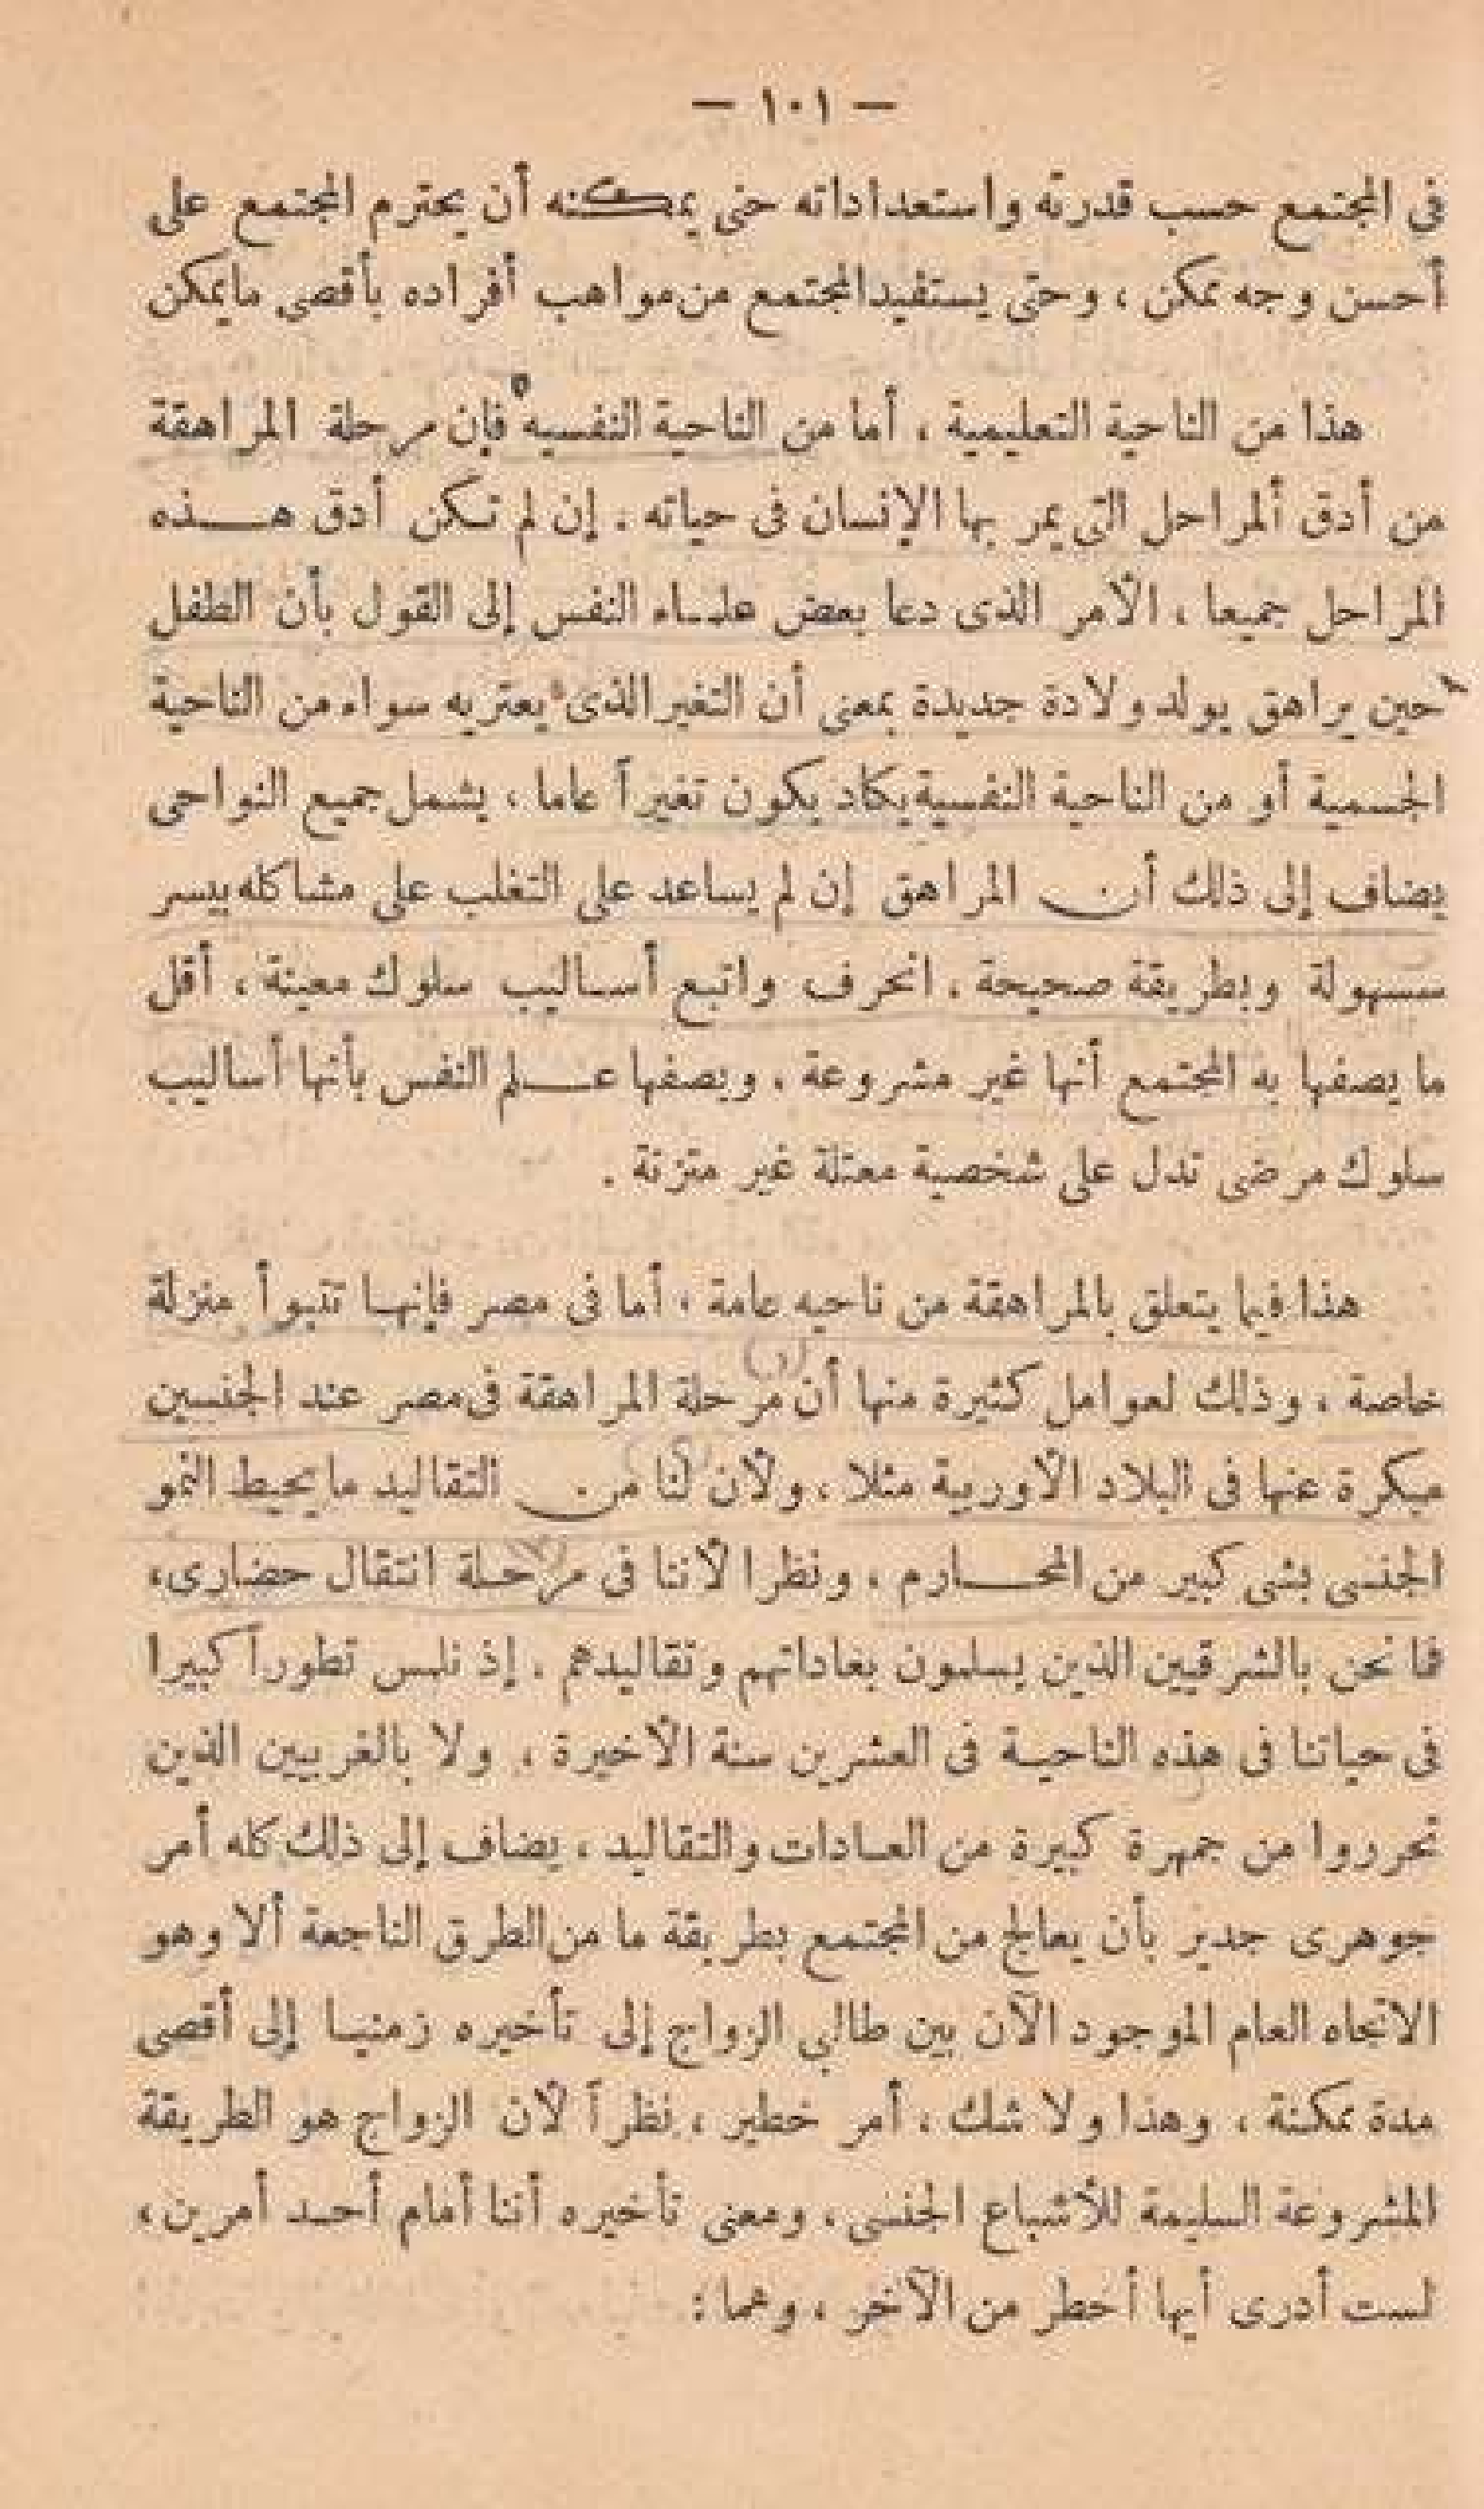 — ١٠١ —
فى المجتمع حسب قدرته واستعداداته حتى يمكنه أن يحترم المجتمع على
أحسن وجه ممكن ، وحتى يستفيد المجتمع من مواهب أفراده بأقصى ما يمكن
هذا من الناحية التعليمية ، أما من الناحية النفسيه فإن مرحلة المراهقة
من أدق ألمراحل التى يمر بها الإنسان فى حياته . إن لم تكن أدق هـذه
المراحل جميعا ، الأمر الذى دعا بعض علماء النفس إلى القول بأن الطفل
حين يراهق يولد ولادة جديدة بمعنى أن التغير الذى يعتريه سواء من الناحية
الجسمية أو من الناحية النفسية يكاد يكون تغيراً عاما ، يشمل جميع النواحى
يضاف إلى ذلك أن المراهق إن لم يساعد على التغلب على مشاكله بيسر
سسهولة وبطريقة صحيحة . انحرف واتبع أساليب سلوك معينة ، أقل
ما يصفها به المجتمع أنها غير مشروعة ، ويصفها عـلم النفس بأنها أساليب
سلوك مرضى تدل على شخصية معتلة غير متزنة .
هذا فيما يتعلق بالمراهقة من ناحيه عامة ، أما فى مصر فإنها تتبوأ منزلة
خاصة ، وذلك لعوامل كثيرة منها أن مرحلة المراهقة فى مصر عند الجنسين
مبكرة عنها فى البلاد الأوربية مثلا ، ولأن لنا من التقاليد ما يحيط النمو
الجنسى بشى كبير من المحـارم ، ونظرا لأننا فى مرحلة انتقال حضارى،
فما نحن بالشرقيين الذين يسلمون بعاداتهم وتقاليدهم . إذ نلمس تطوراً كبيرا
فى حياتنا فى هذه الناحيـة فى العشرين سنة الأخيرة ، ولا بالغربيين الذين
تحرروا من جمهرة كبيرة من العـادات والتقاليد ، يضاف إلى ذلك كله أمر
جوهرى جدير بأن يعالج من المجتمع بطريقة ما من الطرق الناجعة ألا وهو
الاتجاه العام الموجود الآن بين طالبي الزواج إلى تأخيره زمنيـا إلى أقصى
مدة ممكنة ، وهذا ولا شك ، أمر خطير ، نظراً لأن الزواج هو الطريقة
المشروعة السليمة للأشباع الجنسى ، ومعنى تأخيره أننا أمام أحـد أمرين،
لست أدرى أيها أخطر من الآخر ، وهما :